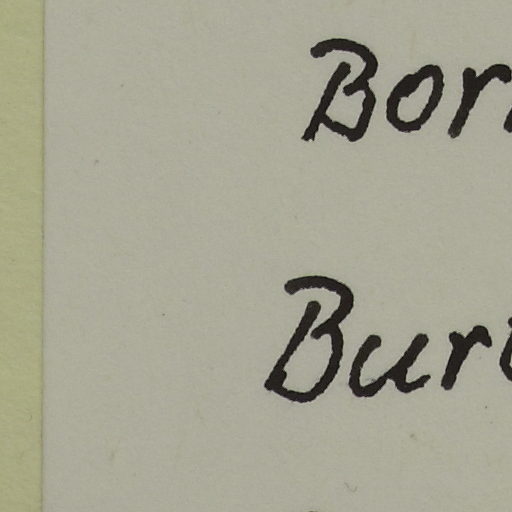 Bor
Bur